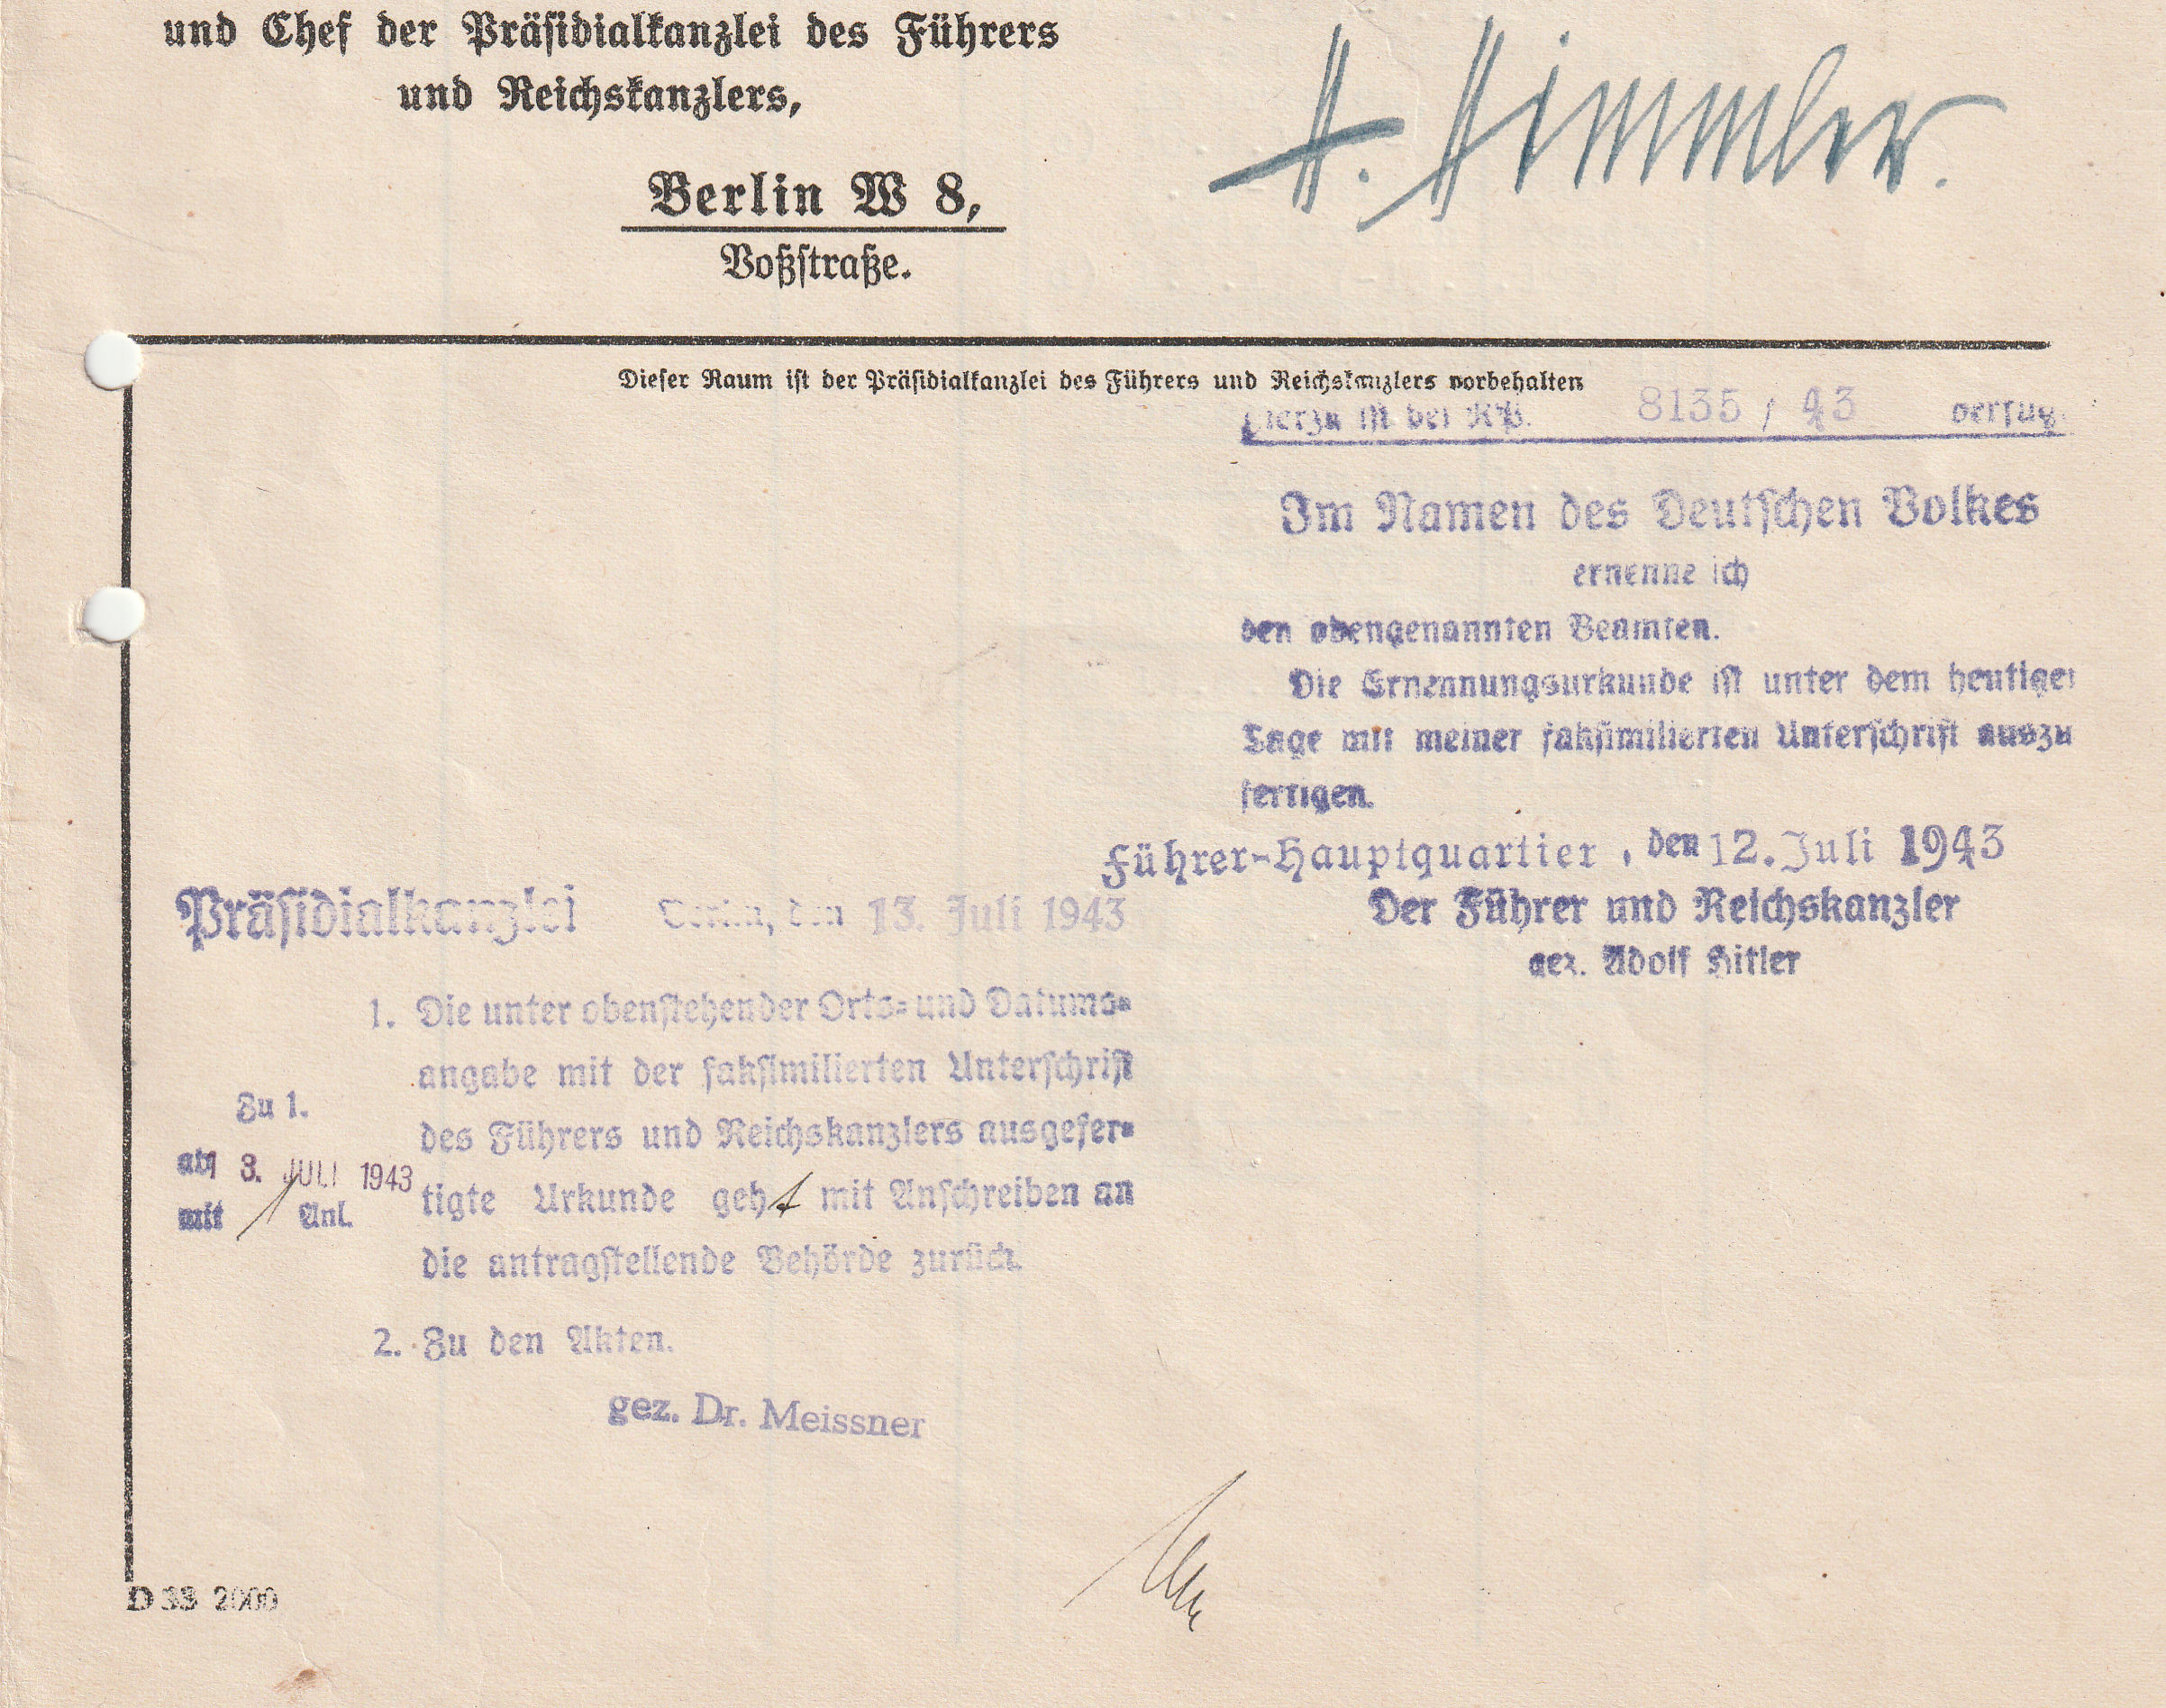 und Chef der Präsidialkanzlei des Führers
und Reichskanzlers,
H. Himmler.
Berlin W 8,
Voßstraße.
Dieser Raum ist der Präsidialkanzlei des Führers und Reichskanzlers vorbehalten
Hierzu ist bei RP. 8135 / 43 verfüg
Im Namen des Deutschen Volkes
ernenne ich
den obengenannten Beamten.
Die Ernennungsurkunde ist unter dem heutigen
Tage mit meiner faksimilierten Unterschrift auszu
fertigen.
Führer-Hauptquartier, den 12. Juli 1943
Der Führer und Reichskanzler
gez. Adolf Hitler
Präsidialkanzlei Berlin, den 13. Juli 1943
1. Die unter obenstehender Orts- und Datums-
angabe mit der faksimilierten Unterschrift
des Führers und Reichskanzlers ausgefer-
tigte Urkunde geht mit Anschreiben an
die antragstellende Behörde zurück.
Zu 1.
ab 13. JULI 1943
mit 1 Anl.
2. Zu den Akten.
gez. Dr. Meissner
D 33 2000